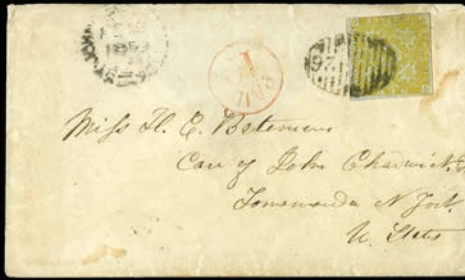 ST. JOHN
PAID
Miss H. E. Bateman
Care of John Chadwick
Tonawanda N York
U. States